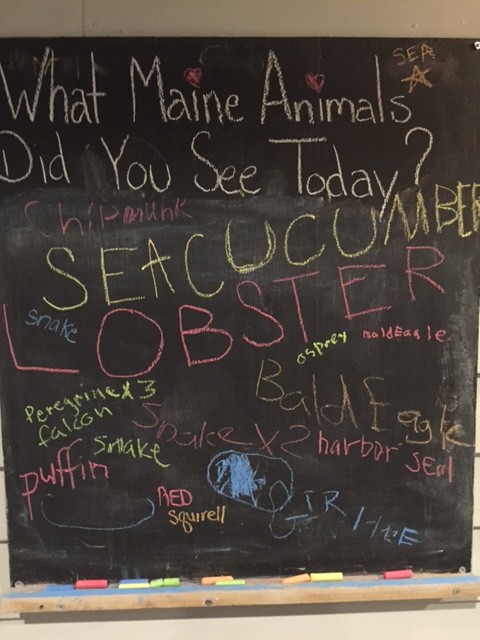 SEA
What Maine Animals
Did You See Today?
Chipmunk
SEACUCUMBER
LOBSTER
snake
osprey
baldEagle
Bald Eagle
Peregrine x 3
falcon
Snake x 2
snake
harbor seal
puffin
RED
squirell